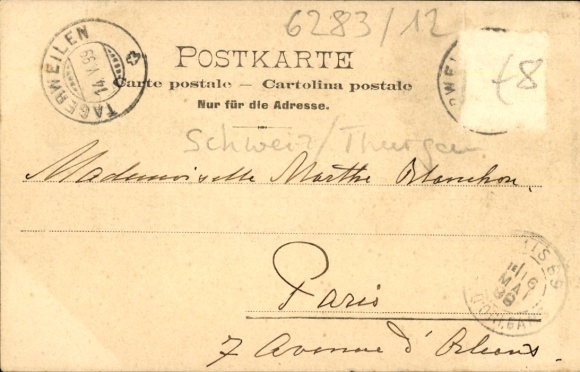 6283/12
TÄGERWEILEN
14.V.99
POSTKARTE
48
Carte postale — Cartolina postale
Nur für die Adresse.
Schweiz/Thurgau
Mademoiselle Marthe Blanchon.
16
MAI
Paris
7 Avenue d'Orléans.